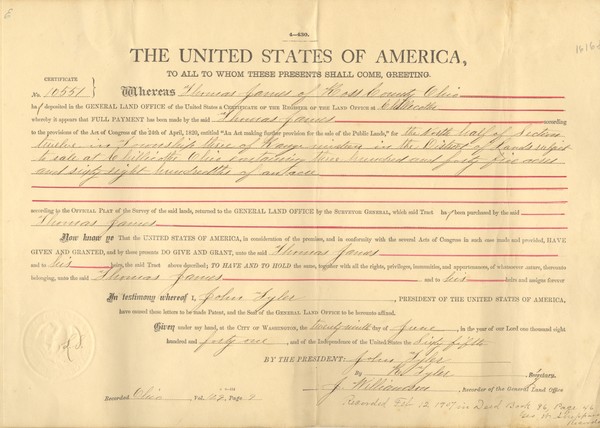 4—430.
THE UNITED STATES OF AMERICA,
TO ALL TO WHOM THESE PRESENTS SHALL COME, GREETING.
CERTIFICATE
No. 10551 } Whereas Thomas James of Ross County Ohio
ha deposited in the GENERAL LAND OFFICE of the United States a CERTIFICATE OF THE REGISTER OF THE LAND OFFICE at Chillicothe
whereby it appears that FULL PAYMENT has been made by the said Thomas James according
to the provisions of the Act of Congress of the 24th of April, 1820, entitled "An Act making further provision for the sale of the Public Lands," for the North half of Section
twelve in Township three of Range nineteen in the District of Lands subject
to sale at Chillicothe Ohio containing three hundred and forty five acres
and sixty eight hundredths of an acre
according to the OFFICIAL PLAT of the Survey of the said lands, returned to the GENERAL LAND OFFICE by the SURVEYOR GENERAL, which said Tract ha been purchased by the said
Thomas James
Now know ye That the UNITED STATES OF AMERICA, in consideration of the premises, and in conformity with the several Acts of Congress in such case made and provided, HAVE
GIVEN AND GRANTED, and by these presents DO GIVE AND GRANT, unto the said Thomas James
and to his heirs, the said Tract above described; TO HAVE AND TO HOLD the same, together with all the rights, privileges, immunities, and appurtenances, of whatsoever nature, thereunto
belonging, unto the said Thomas James and to his heirs and assigns forever
In testimony whereof I, John Tyler, PRESIDENT OF THE UNITED STATES OF AMERICA,
have caused these letters to be made Patent, and the Seal of the GENERAL LAND OFFICE to be hereunto affixed.
Given under my hand, at the CITY OF WASHINGTON, the twenty ninth day of June, in the year of our Lord one thousand eight
hundred and forty one, and of the Independence of the United States the Sixty fifth
BY THE PRESIDENT: John Tyler
By R. Tyler Secretary.
J. Williamson, Recorder of the General Land Office
Recorded Ohio, Vol. Page
Recorded Feb 12, 1907 in Deed Book 96, Page 46